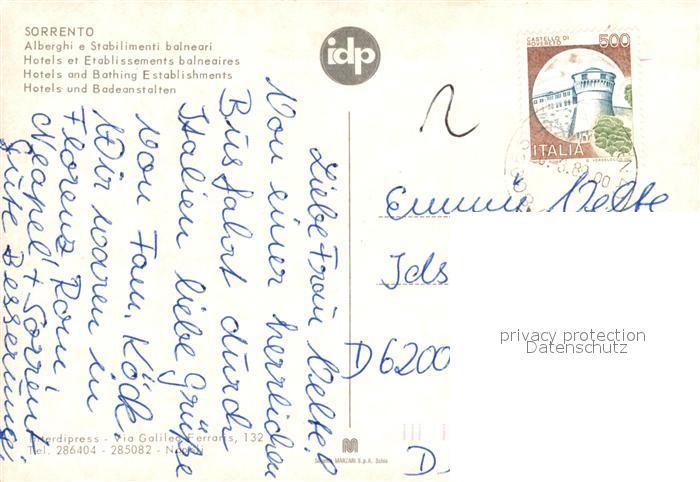 SORRENTO
Alberghi e Stabilimenti balneari
Hotels et Etablissements balneaires
Hotels and Bathing Establishments
Hotels und Badeanstalten
idp
CASTELLO DI
ROVERETO
500
ITALIA
Liebe Frau Welte!
Von einer herrlichen
Busfahrt durch
Italien liebe Grüße
von Fam. Köck.
Wir waren in
Florenz Rom
Neapel + Sorrent
Gute Besserung!
Emmi Welte
Ids
D 6200
D
privacy protection
Datenschutz
Interdipress - Via Galileo Ferraris, 132
Tel. 286404 - 285082 - Napoli
MANZARI S.p.A.